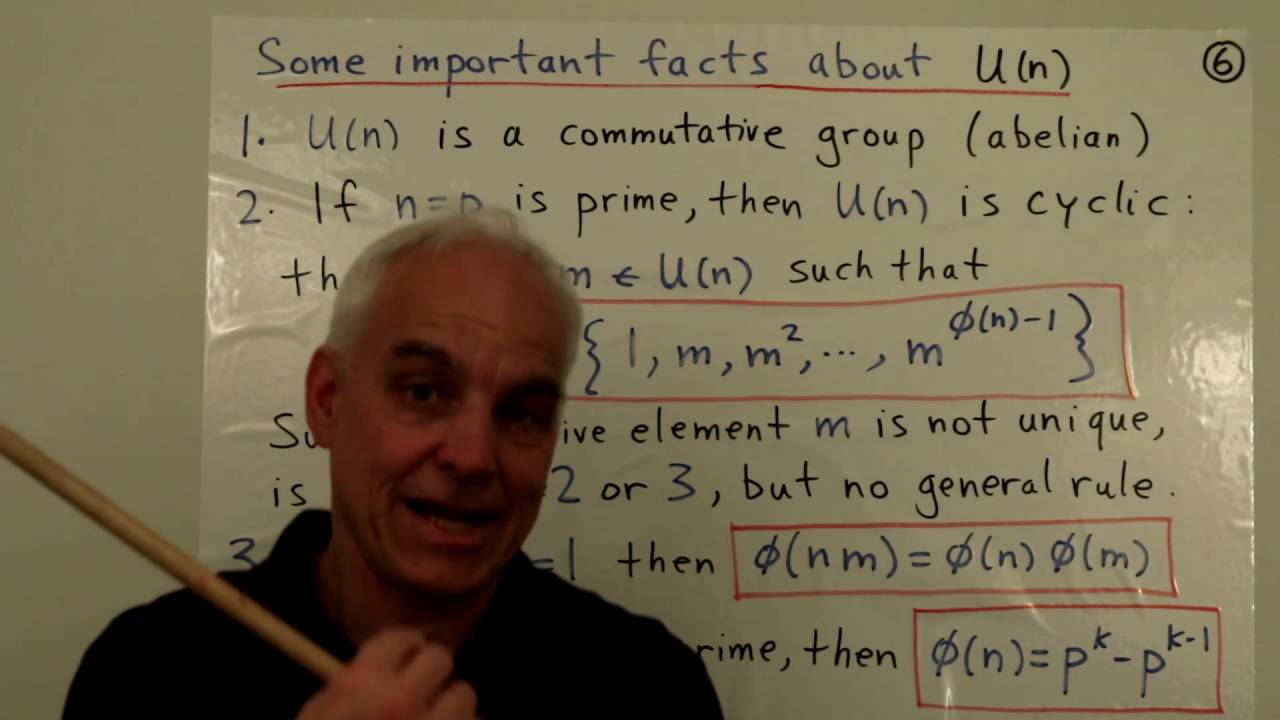 Some important facts about U(n) ⑥
1. U(n) is a commutative group (abelian)
2. If n=p is prime, then U(n) is cyclic:
m ∈ U(n) such that
{1, m, m², ..., m^{φ(n)-1}}
element m is not unique,
is 2 or 3, but no general rule.
3. =1 then φ(nm) = φ(n) φ(m)
then φ(n) = p^k - p^{k-1}